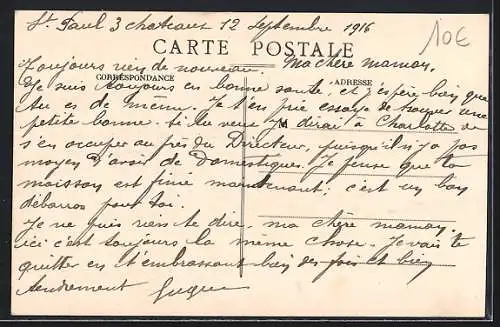 St Paul 3 chateaux 12 Septembre 1916
10€
CARTE POSTALE
Toujours rien de nouveau. Ma chère maman,
CORRESPONDANCE
ADRESSE
Je suis toujours en bonne santé, et j'espère bien que
tu es de même. Je t'en prie essaye de trouver une
petite bonne. si tu veux je dirai à Charlotte de
s'en occuper auprès du Directeur, puisqu'il n'y a pas
moyen d'avoir de Domestiques. Je pense que ta
moisson est finie maintenant; c'est un bon
débarras pour toi.
Je ne puis rien te dire, ma chère maman,
ici c'est toujours la même chose. Je vais te
quitter en t'embrassant bien des fois et bien
tendrement